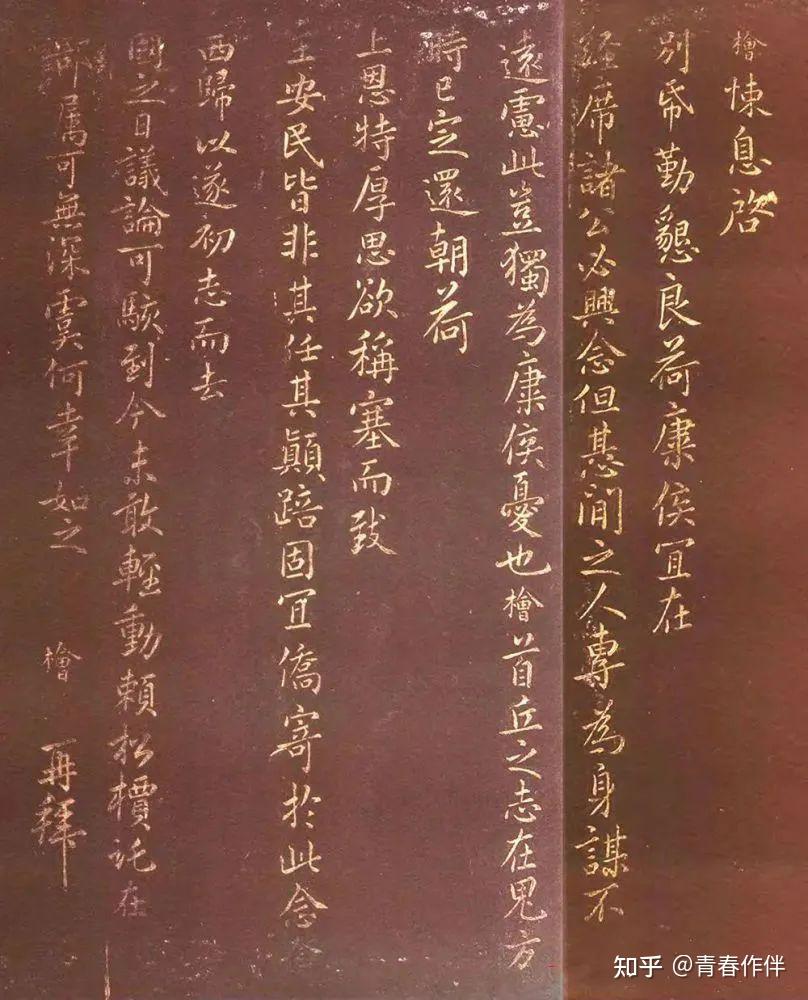 檜悚息啓
別帋勤懇良荷康侯宜在
經席諸公必興念但基間之人專為身謀不
遠慮此豈獨為康侯憂也檜首丘之志在鬼方
時已定還朝荷
上恩特厚思欲稱塞而致
主安民皆非其任其顛踣固宜僑寄於此念念
西歸以遂初志而去
國之日議論可駭到今未敢輕動賴松檟託在
部属可無深虞何幸如之 檜 再拜
知乎 @青春作伴